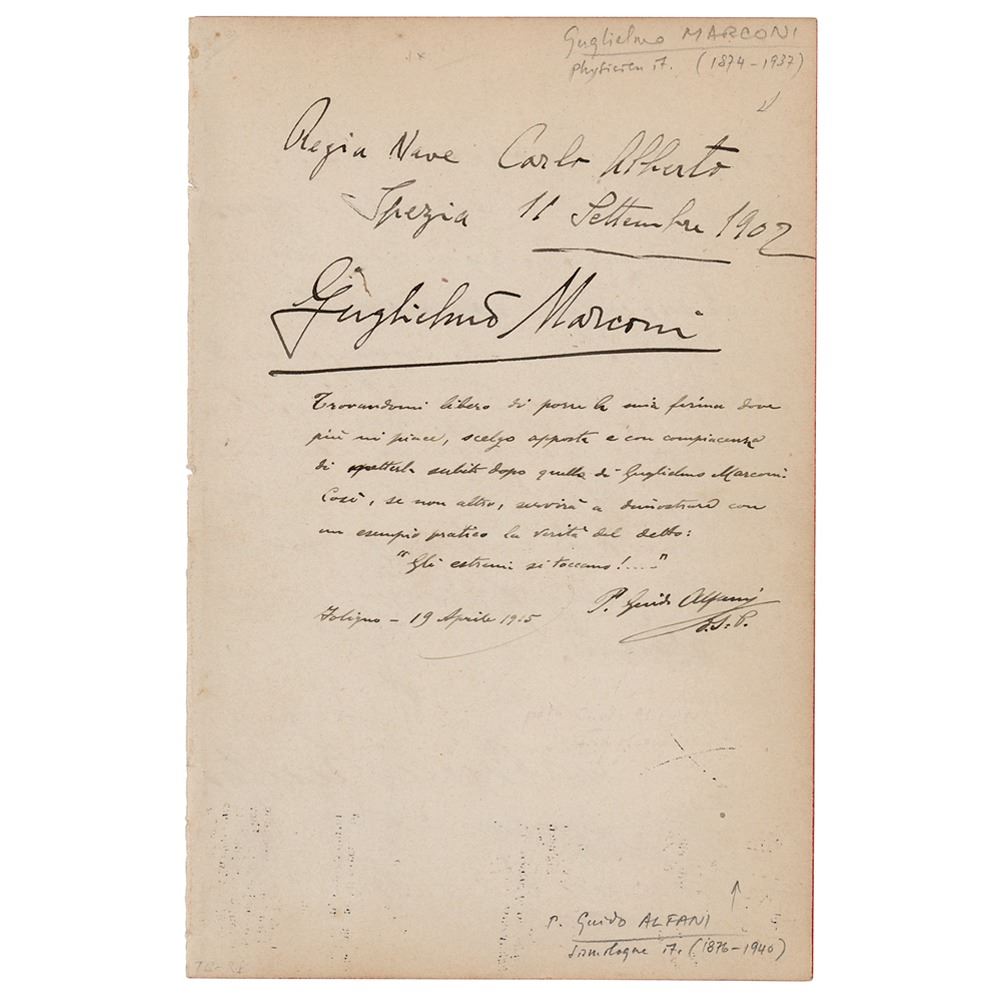 Guglielmo MARCONI
physicien it. (1874-1937)
Regia Nave Carlo Alberto
Spezia 11 Settembre 1902
Guglielmo Marconi
Trovandomi libero di porre la mia firma dove
più mi piace, scelgo apposta e con compiacenza
di metterla subito dopo quella di Guglielmo Marconi.
Così, se non altro, servirà a dimostrare con
un esempio pratico la verità del detto:
"Gli estremi si toccano!...."
P. Guido Alfani
Foligno - 19 Aprile 1905
d.S.P.
P. Guido ALFANI
sismologue it. (1876-1940)